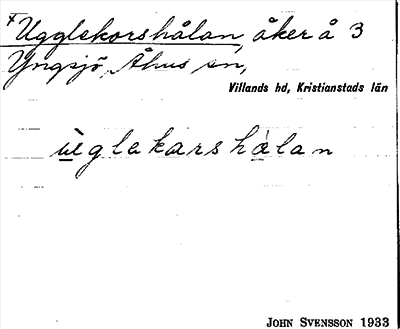 Ugglekorshålan, åker å 3
Yngsjö, Åhus sn,
Villands hd, Kristianstads län
ùglekarshálan
JOHN SVENSSON 1933